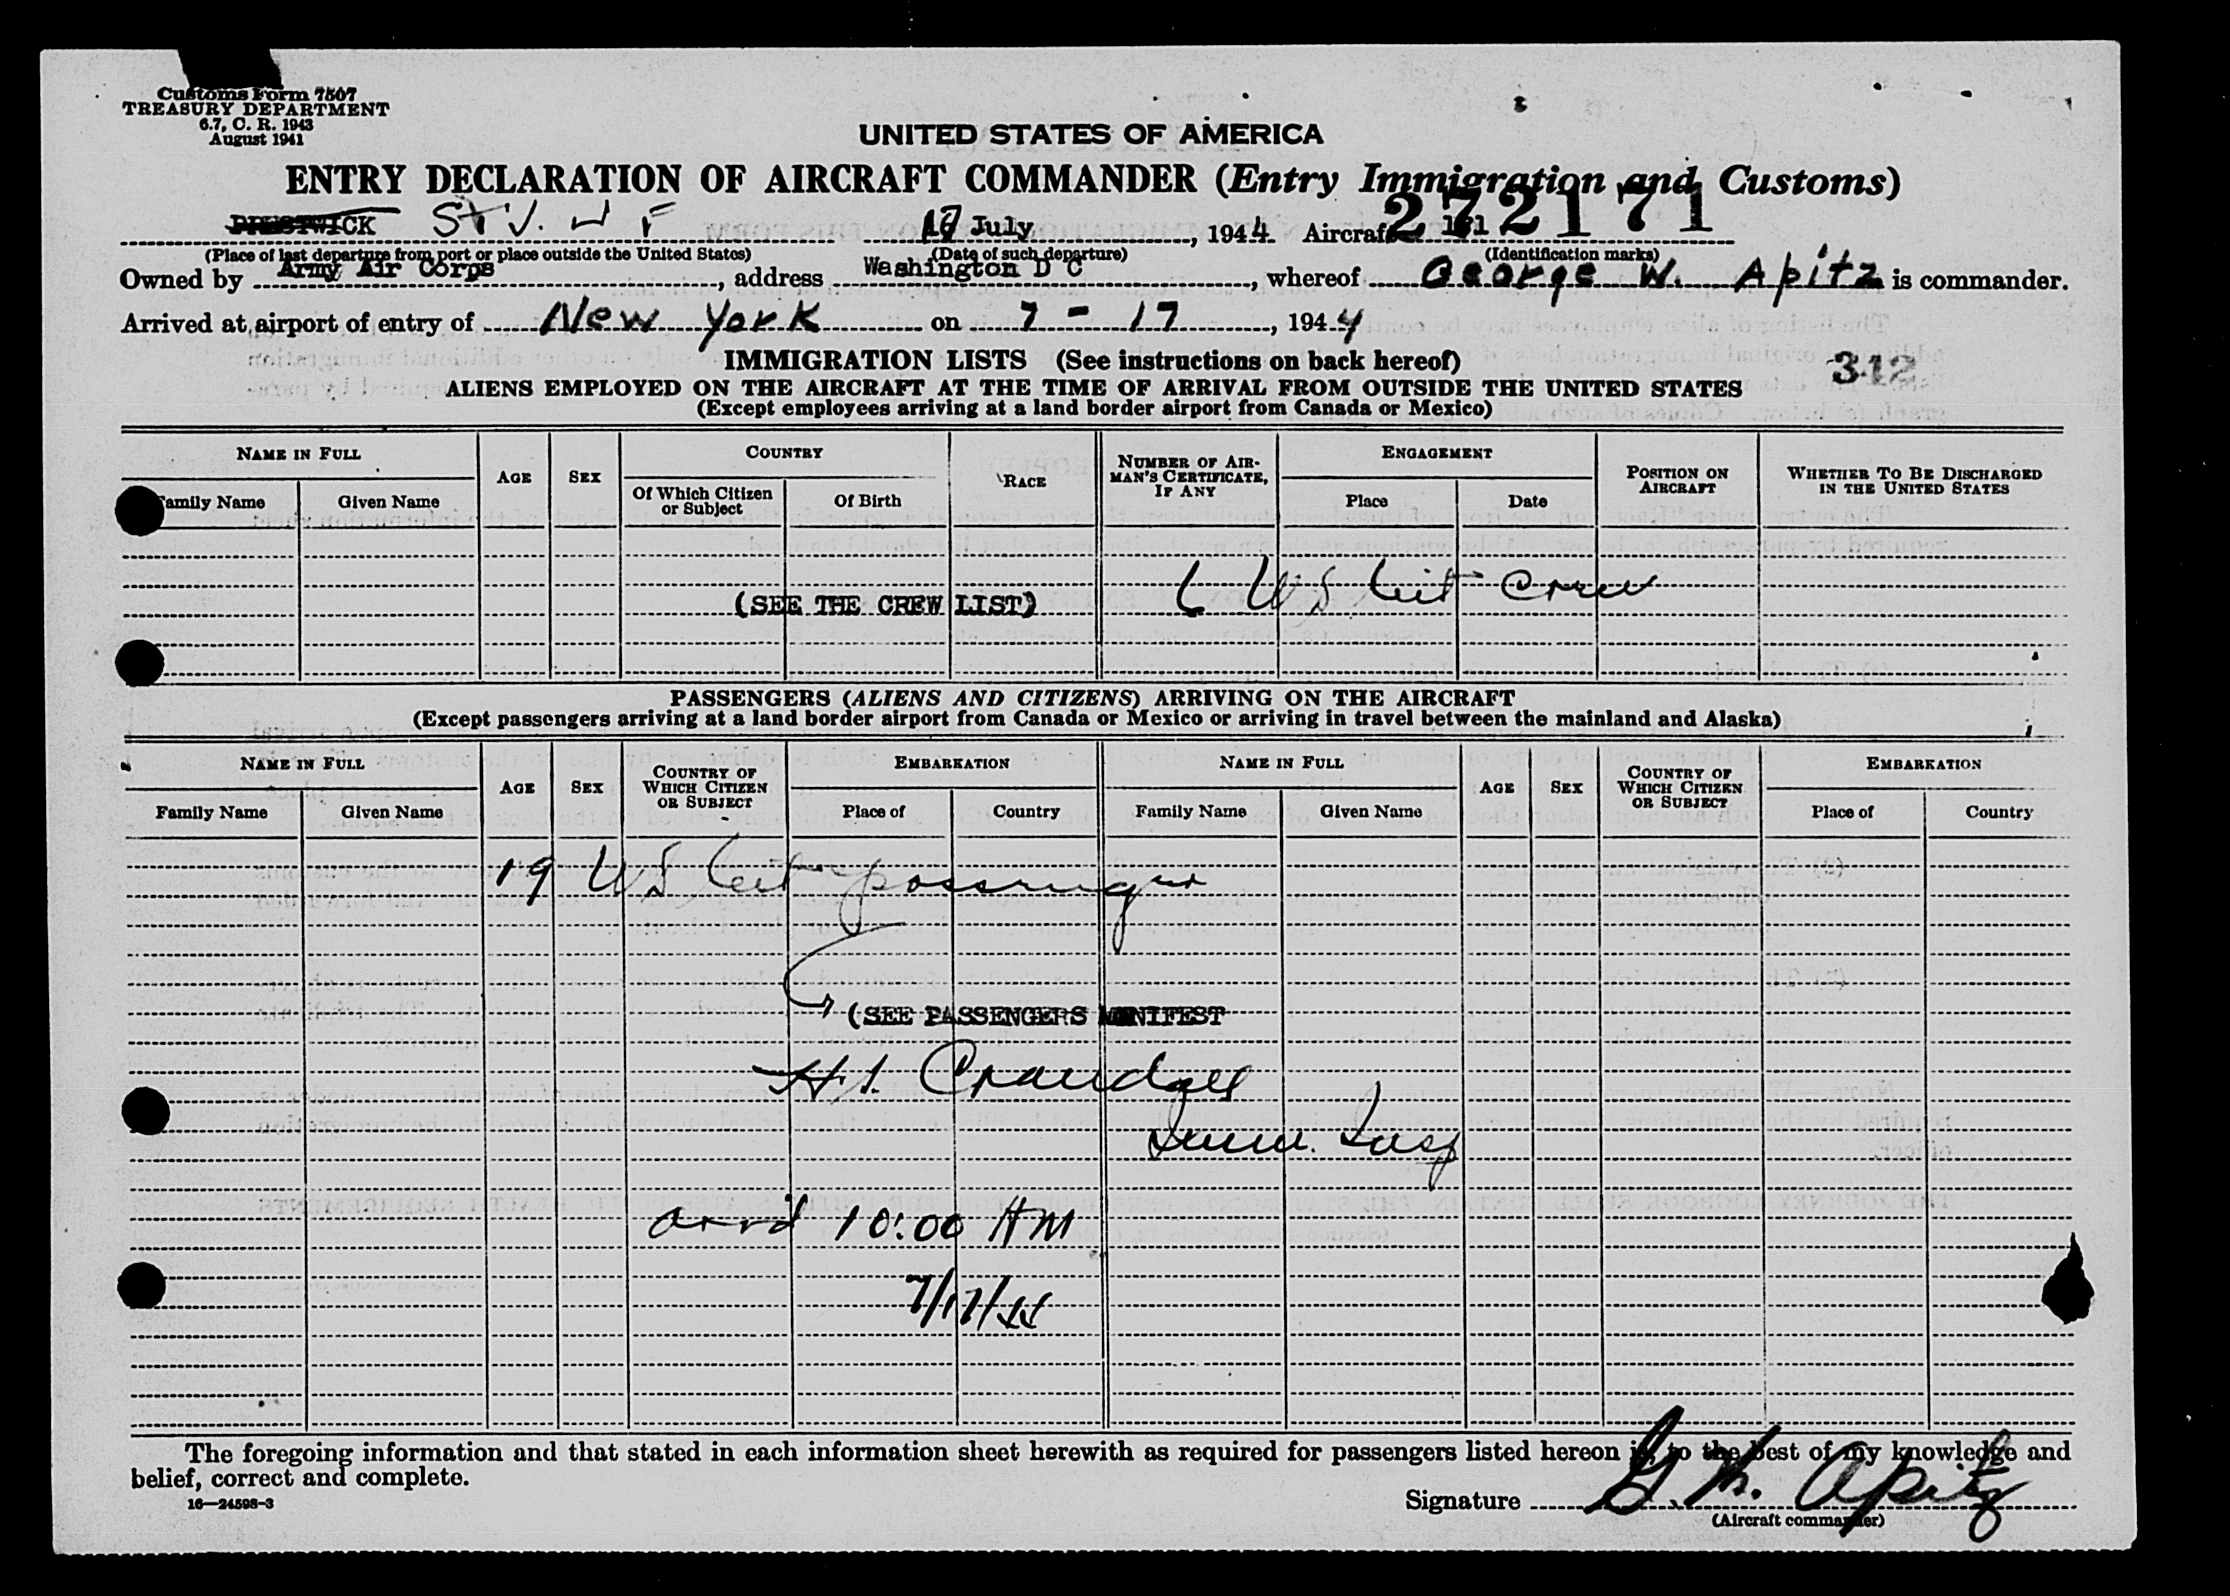 Customs Form 7507
TREASURY DEPARTMENT
6.7, C. R. 1943
August 1941
UNITED STATES OF AMERICA
ENTRY DECLARATION OF AIRCRAFT COMMANDER (Entry Immigration and Customs)
St J. N F 17 July, 1944 Aircraft 272171
(Place of last departure from port or place outside the United States) (Date of such departure) (Identification marks)
Owned by Army Air Corps, address Washington D C, whereof George W. Apitz is commander.
Arrived at airport of entry of New York on 7 - 17, 1944
IMMIGRATION LISTS (See instructions on back hereof)
312
ALIENS EMPLOYED ON THE AIRCRAFT AT THE TIME OF ARRIVAL FROM OUTSIDE THE UNITED STATES
(Except employees arriving at a land border airport from Canada or Mexico)
NAME IN FULL AGE SEX COUNTRY RACE NUMBER OF AIRMAN'S CERTIFICATE, IF ANY ENGAGEMENT POSITION ON AIRCRAFT WHETHER TO BE DISCHARGED IN THE UNITED STATES
Family Name Given Name Of Which Citizen or Subject Of Birth Place Date
6 US Cit Crew
(SEE THE CREW LIST)
PASSENGERS (ALIENS AND CITIZENS) ARRIVING ON THE AIRCRAFT
(Except passengers arriving at a land border airport from Canada or Mexico or arriving in travel between the mainland and Alaska)
NAME IN FULL AGE SEX COUNTRY OF WHICH CITIZEN OR SUBJECT EMBARKATION NAME IN FULL AGE SEX COUNTRY OF WHICH CITIZEN OR SUBJECT EMBARKATION
Family Name Given Name Place of Country Family Name Given Name Place of Country
19 US Cit passenger
(SEE PASSENGERS MANIFEST
Crandall
Imm. Insp
arr'd 10:00 AM
7/17/44
The foregoing information and that stated in each information sheet herewith as required for passengers listed hereon is, to the best of my knowledge and
belief, correct and complete.
16—24598-3
Signature G. W. Apitz
(Aircraft commander)